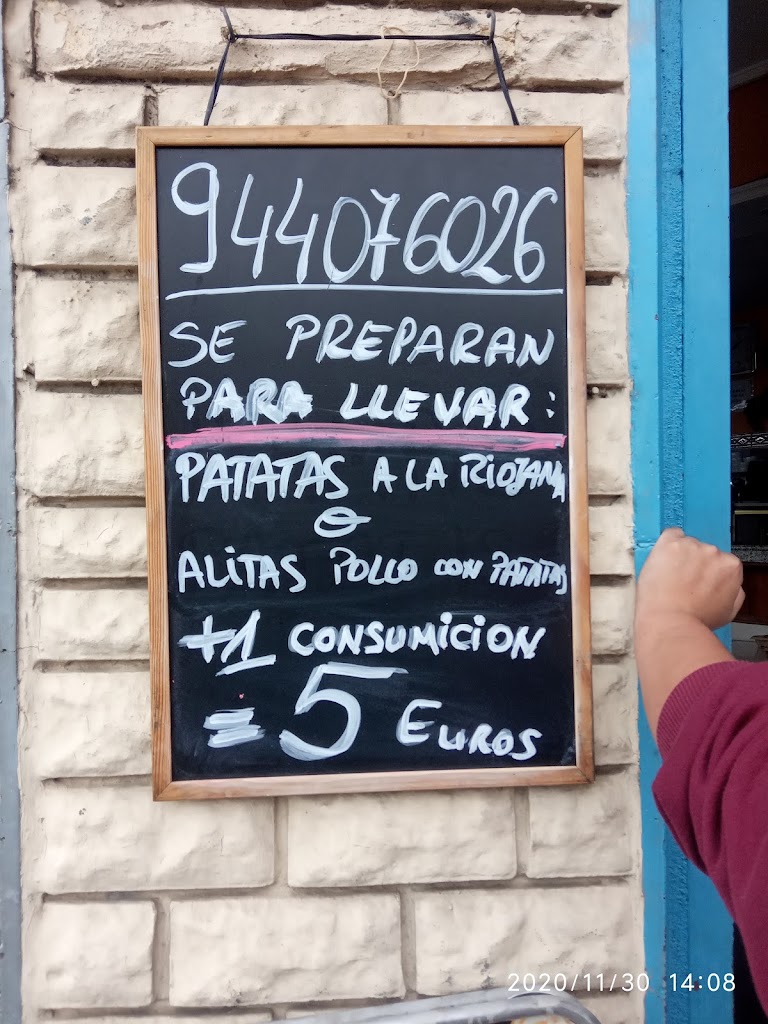 944076026
SE PREPARAN
PARA LLEVAR:
PATATAS A LA RIOJANA
O
ALITAS POLLO CON PATATAS
+1 CONSUMICION
= 5 EUROS
2020/11/30 14:08